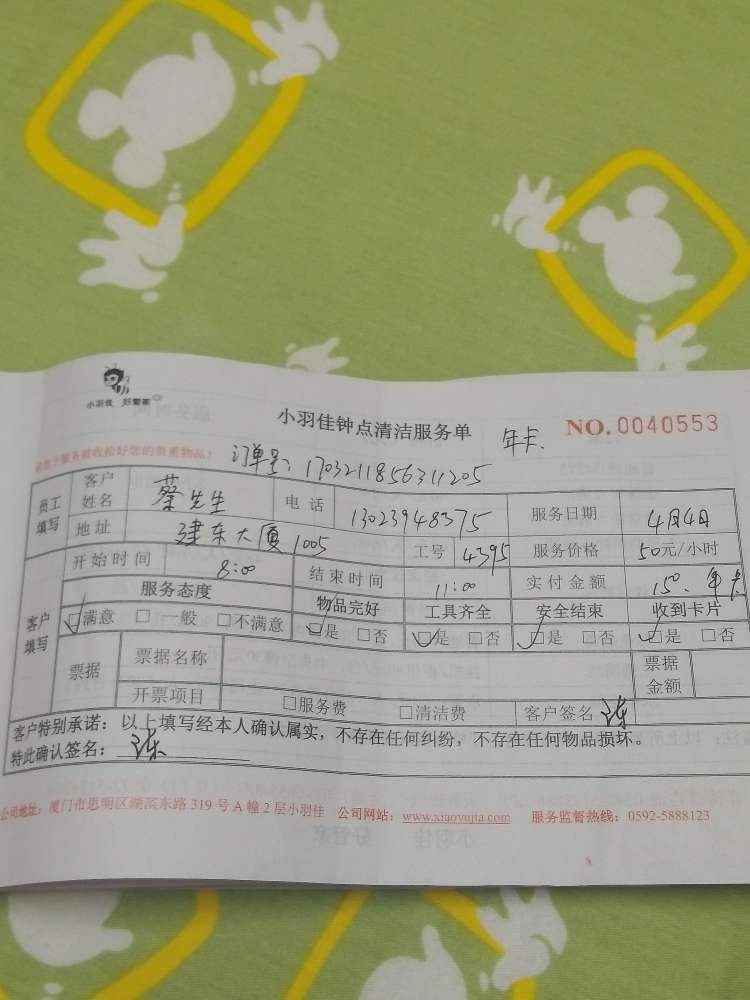 小羽佳 好管家
小羽佳钟点清洁服务单 年卡 NO.0040553
服务前收拾好您的贵重物品！ 订单号：1703211856311205
员工填写 客户姓名 蔡先生 电话 13023948375 服务日期 4月4日
地址 建东大厦1005 工号 4395 服务价格 50元/小时
客户填写 开始时间 8:00 结束时间 11:00 实付金额 150. 年卡
服务态度 物品完好 工具齐全 安全结束 收到卡片
☑满意 □一般 □不满意 ☑是 □否 ☑是 □否 ☑是 □否 ☑是 □否
票据 票据名称 票据金额
开票项目 □服务费 □清洁费 客户签名
客户特别承诺：以上填写经本人确认属实，不存在任何纠纷，不存在任何物品损坏。
特此确认签名：
公司地址：厦门市思明区湖滨东路319号A幢2层小羽佳 公司网站：www.xiaoyujia.com 服务监督热线：0592-5888123